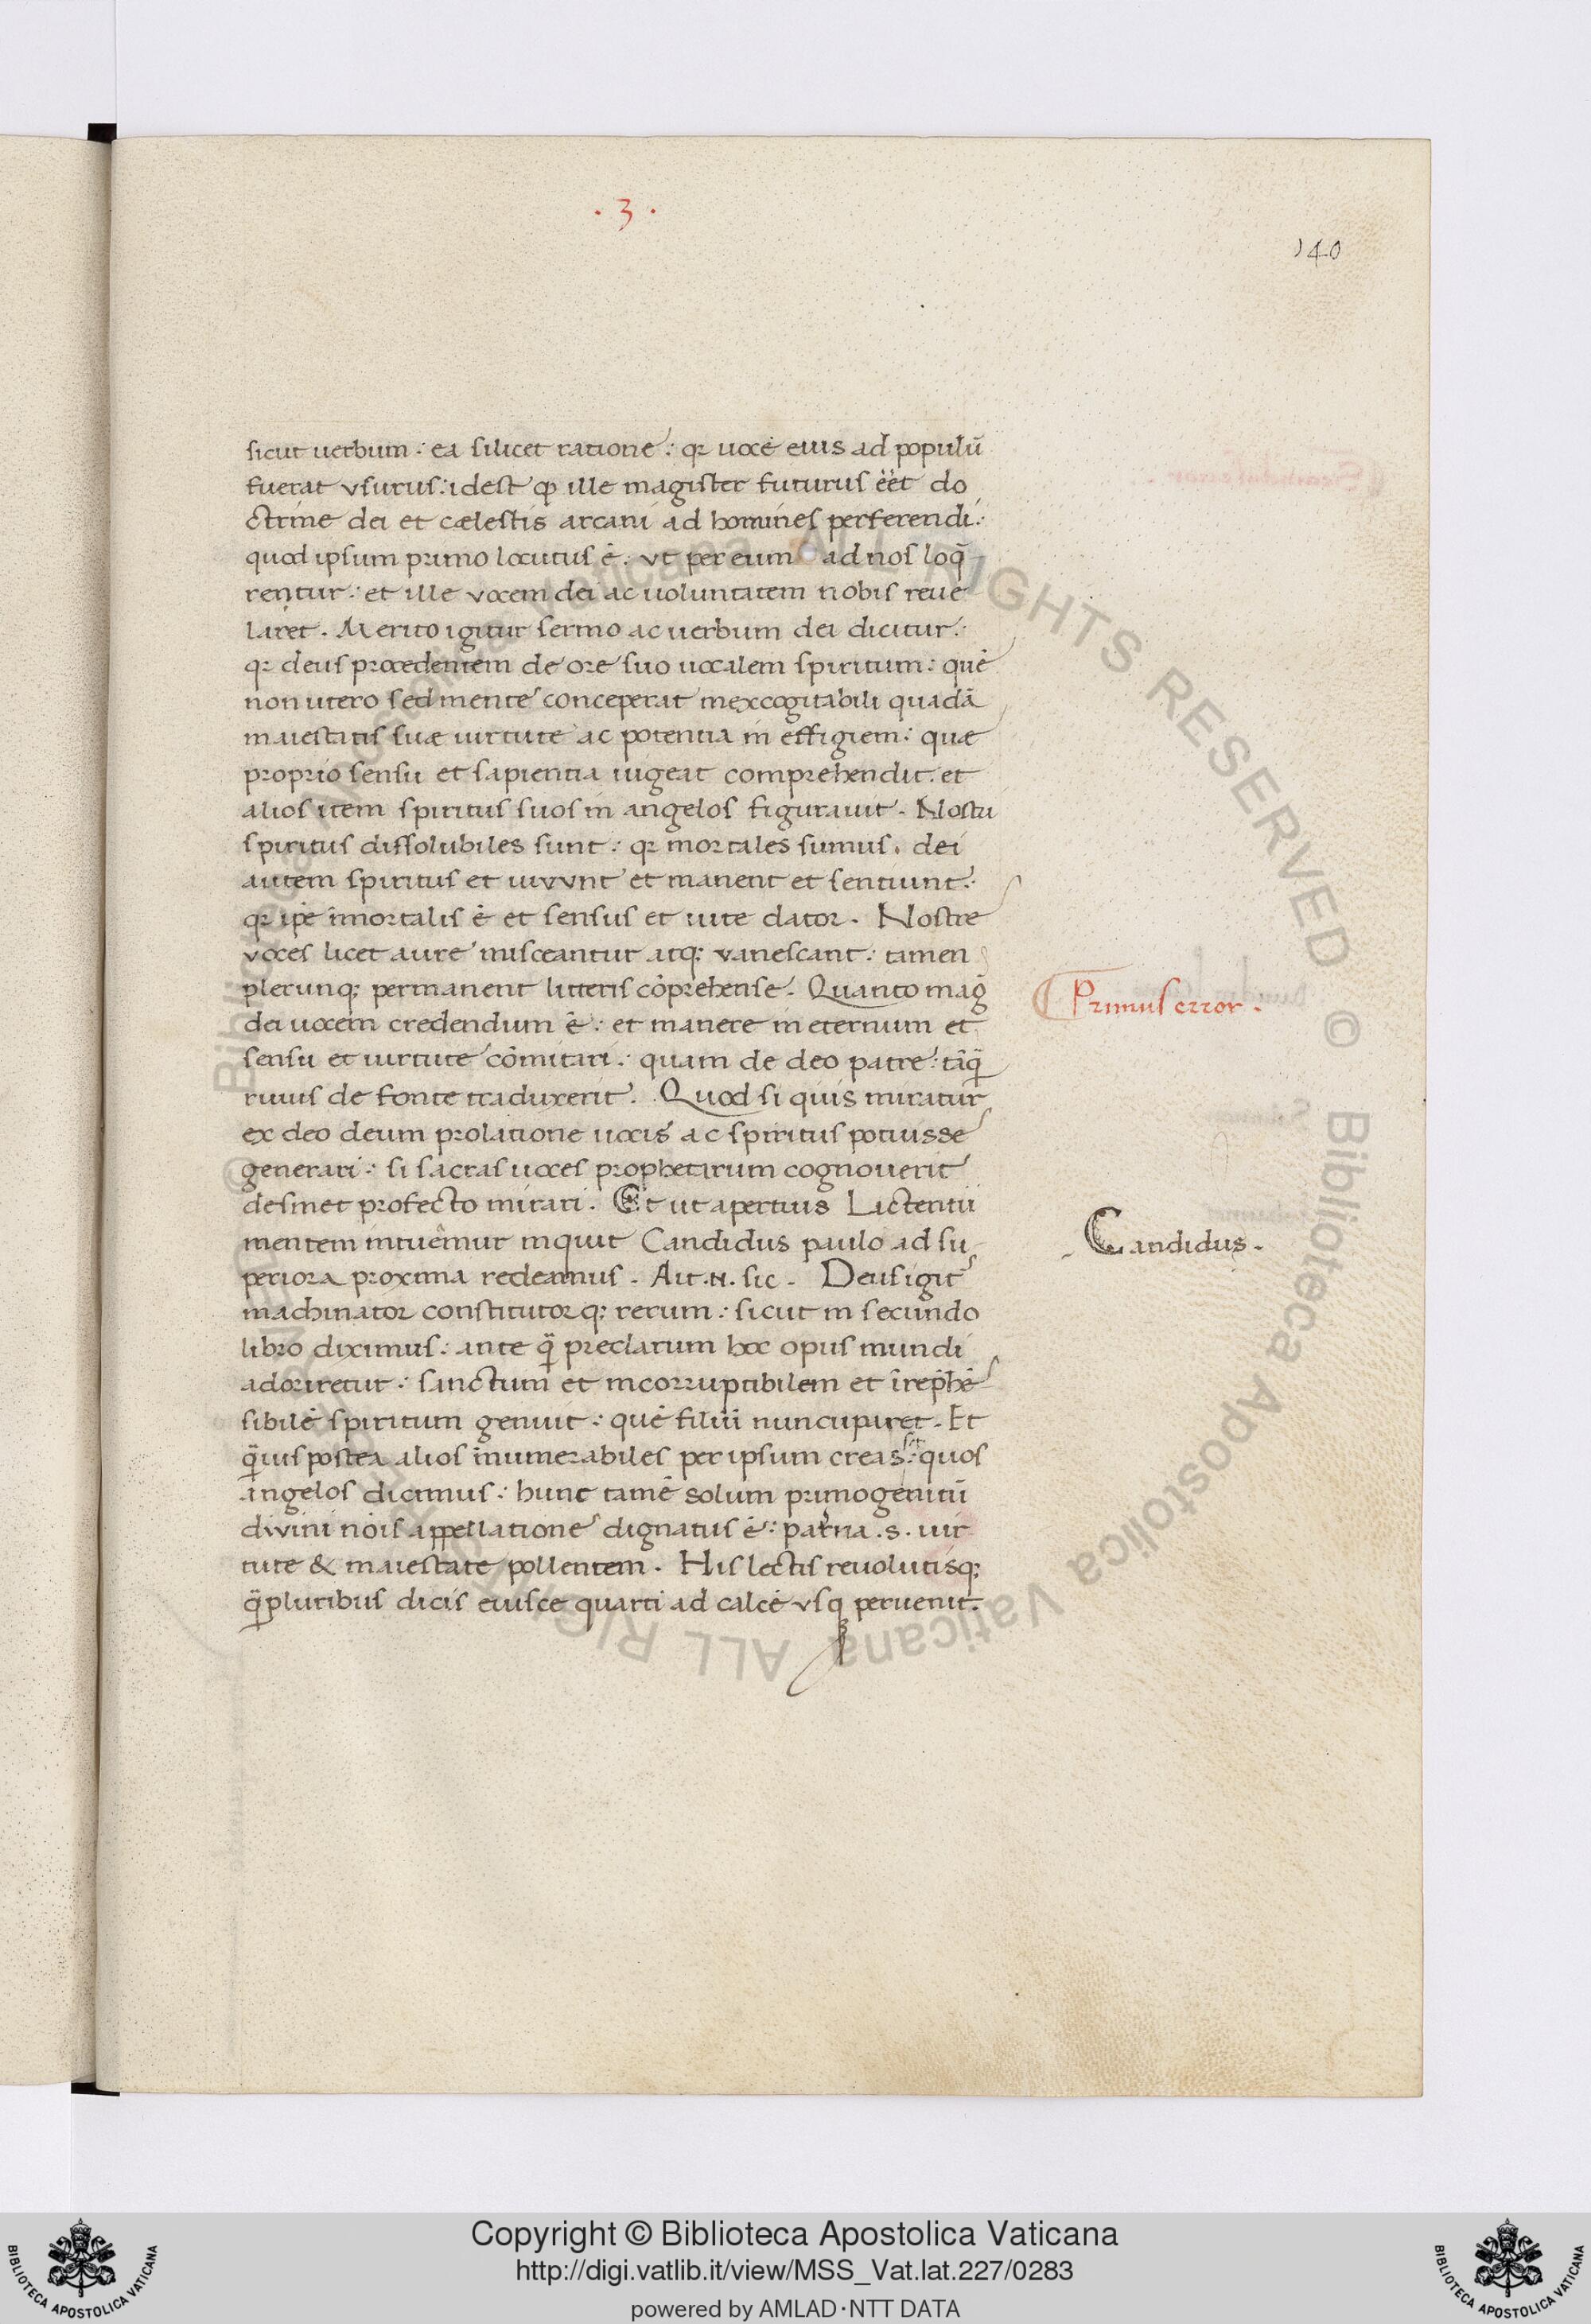 · 3 ·
140
sicut uerbum : ea silicet ratione : qꝛ uocē eius ad populū
fuerat vsurus : idest ꝙ ille magister futurus eēt do
ctrine dei et cælestis arcani ad homines perferendi :
quod ipsum primo locutus ē . vt per eum ad nos loq̄
rentur : et ille vocem dei ac uoluntatem nobis reue
laret . Merito igitur sermo ac uerbum dei dicitur :
qꝛ deus procedentem de ore suo uocalem spiritum : quē
non utero sed mente conceperat inexcogitabili quadā
maiestatis suæ uirtute ac potentia in effigiem : quæ
proprio sensu et sapientia uigeat comprehendit . et
alios item spiritus suos in angelos figurauit . Nostri
spiritus dissolubiles sunt : qꝛ mortales sumus . dei
autem spiritus et uivvnt et manent et sentiunt :
qꝛ ipē īmortalis ē et sensus et uite dator . Nostre
voces licet aure misceantur atq; vanescant : tamen
plerunq; permanent litteris cōprehense . Quanto mag̉
dei uocem credendum ē : et manere in eternum et
sensu et uirtute cōmitari : quam de deo patre : tāq̄
riuus de fonte traduxerit . Quod si quis miratur
ex deo deum prolatione uocis ac spiritus potuisse
generari : si sacras uoces prophetarum cognouerit
desinet profecto mirari . Et ut apertius Lictentii
mentem intuēmur inquit Candidus paulo ad su
periora proxima redeamus . Ait .N. sic . Deus igit᷑
machinator constitutor q; rerum : sicut in secundo
libro diximus : ante q̄ preclarum hoc opus mundi
adoriretur : sanctum et incorruptibilem et īrep̄hē
sibilē spiritum genuit : quē filiū nuncuparet . Et
q̄uis postea alios īnumerabiles per ipsum creas s; : quos
angelos dicimus : hunc tamē solum primogenitū
divini nōis appellatione dignatus ē : patria .s. uir
tute & maiestate pollentem . His lectis reuolutisq;
q̄pluribus dicis eiusce quarti ad calcē vsq peruenit .
Primus error .
Candidus .
Copyright © Biblioteca Apostolica Vaticana
http://digi.vatlib.it/view/MSS_Vat.lat.227/0283
powered by AMLAD·NTT DATA
© Biblioteca Apostolica Vaticana ALL RIGHTS RESERVED
BIBLIOTECA APOSTOLICA VATICANA
BIBLIOTECA APOSTOLICA VATICANA